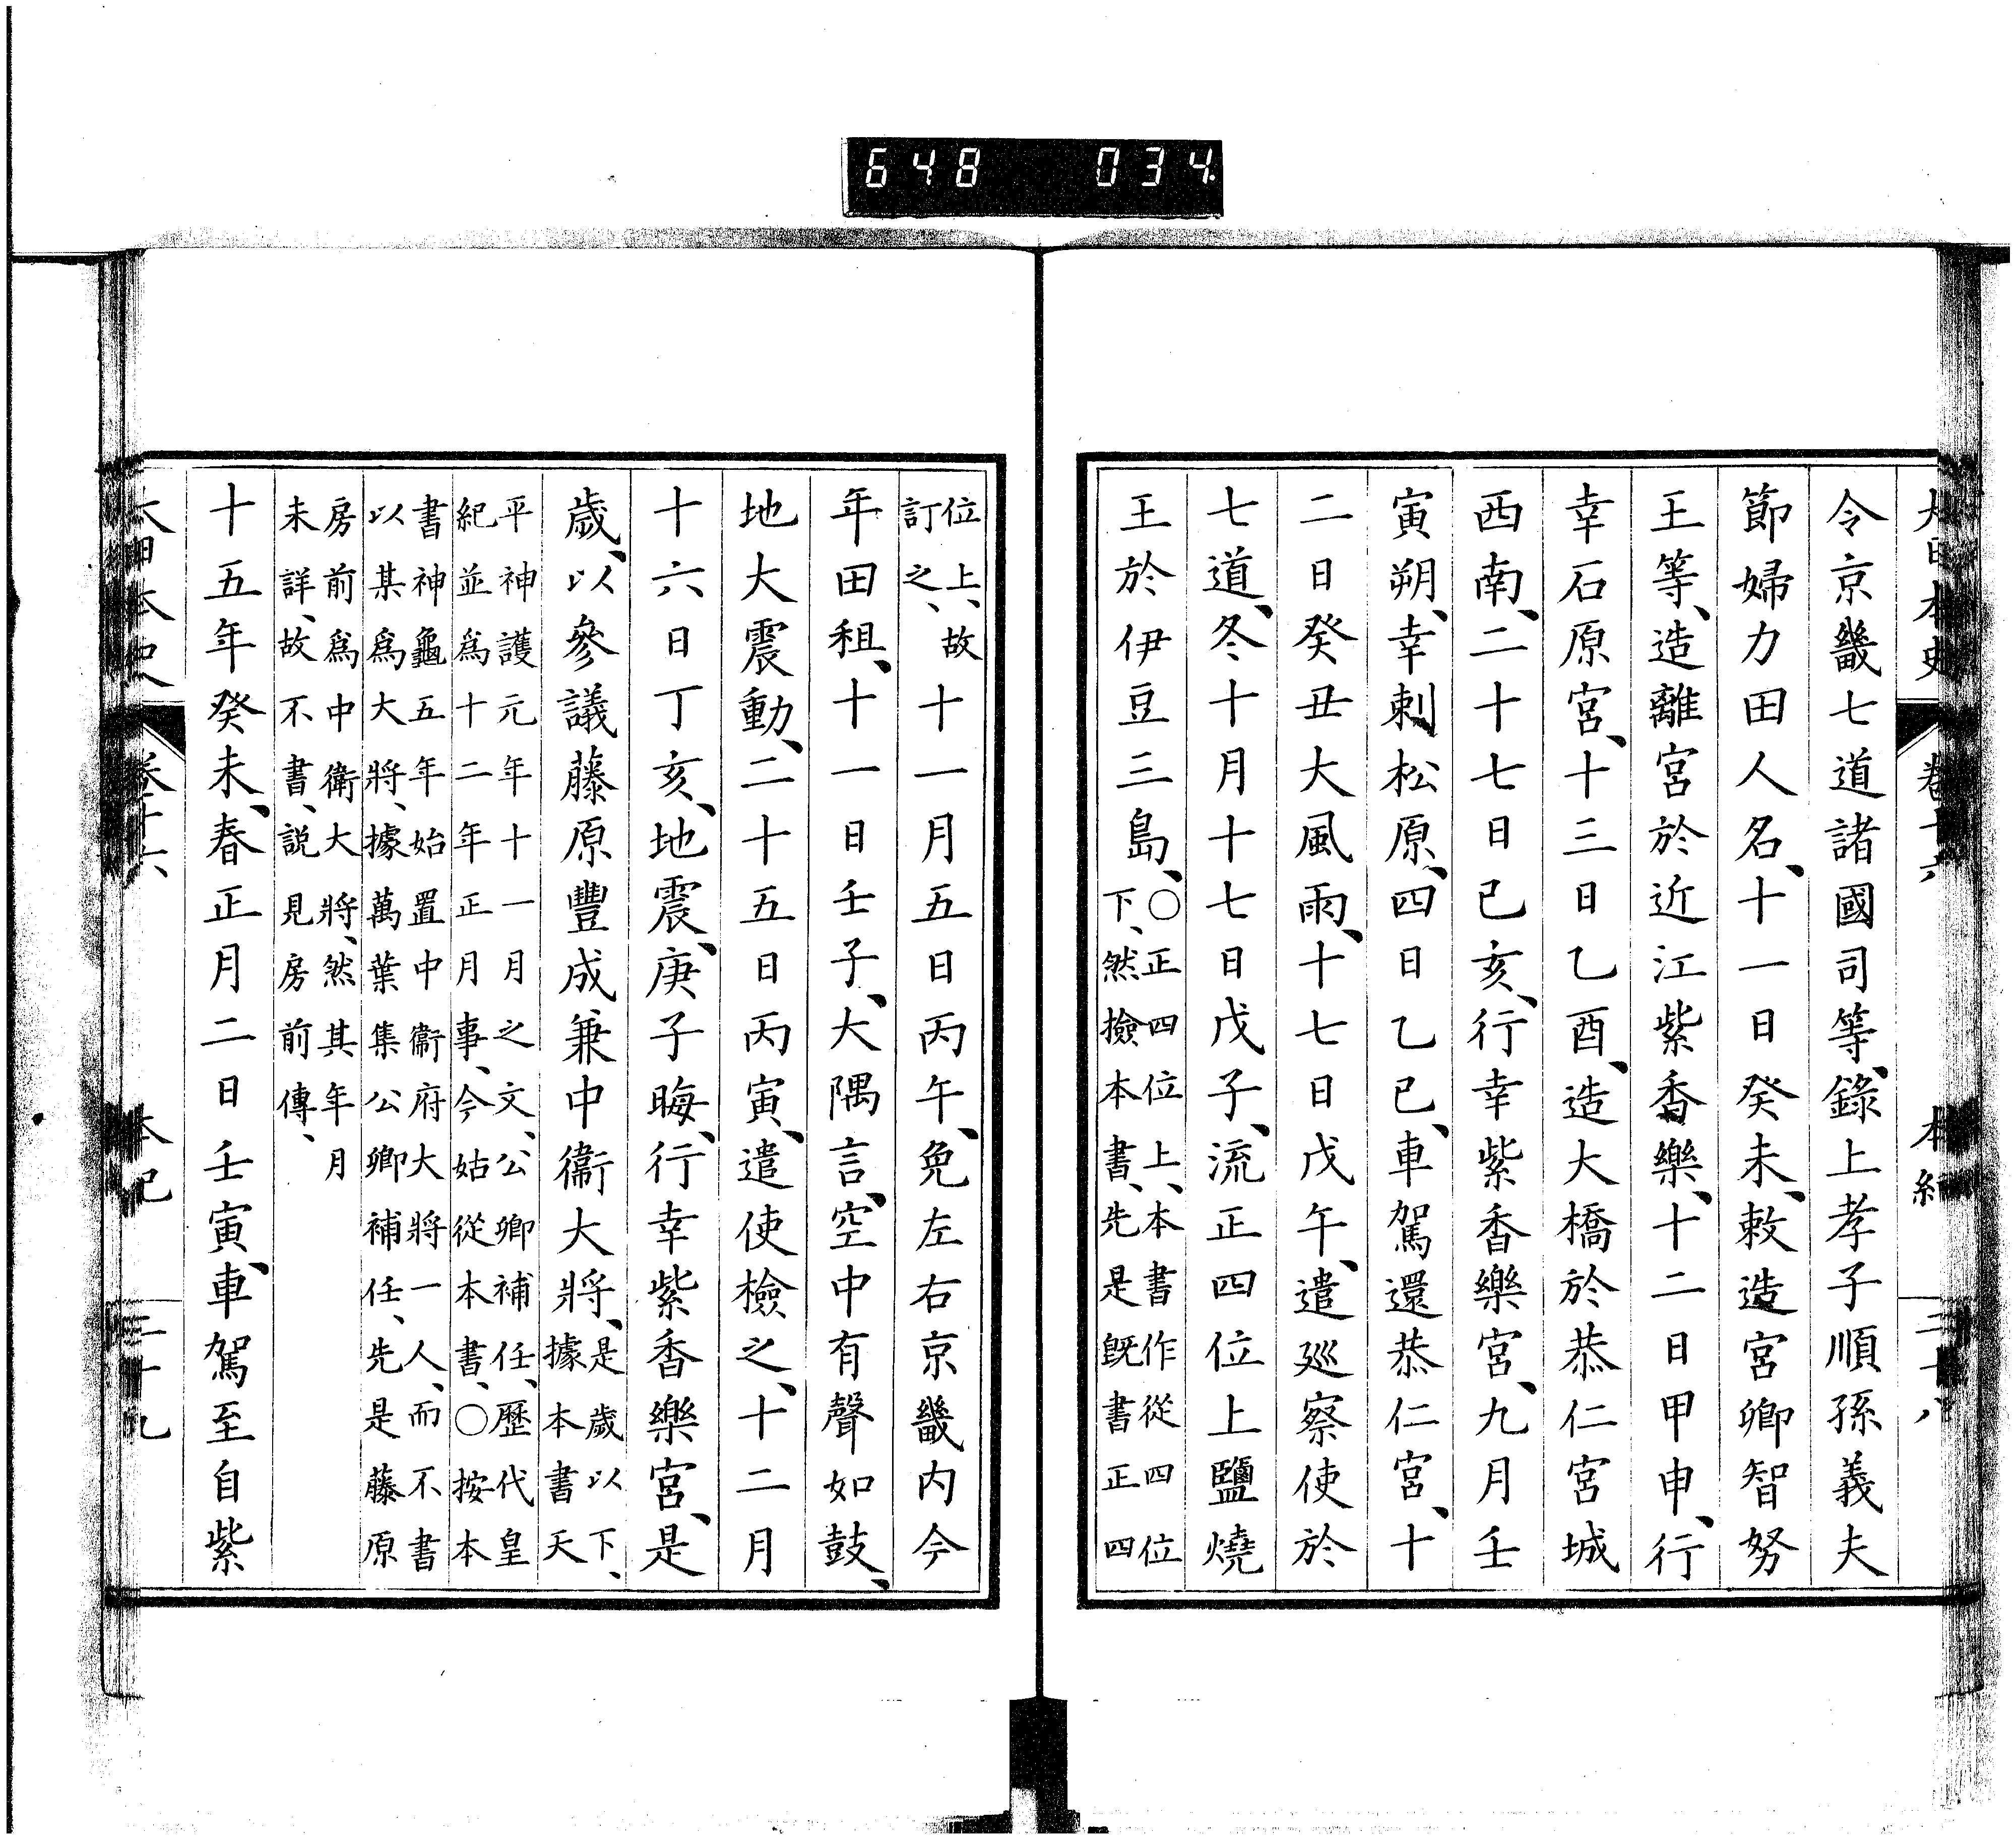 648 034
大日本史 卷十六 本紀 二十八
令京畿七道諸國司等、錄上孝子順孫義夫
節婦力田人名、十一日癸未、敕造宮卿智努
王等、造離宮於近江紫香樂、十二日甲申、行
幸石原宮、十三日乙酉、造大橋於恭仁宮城
西南、二十七日己亥、行幸紫香樂宮、九月壬
寅朔、幸刺松原、四日乙巳、車駕還恭仁宮、十
二日癸丑大風雨、十七日戊午、遣廵察使於
七道、冬十月十七日戊子、流正四位上鹽燒
王於伊豆三島、○正四位上、本書作從四位
下、然撿本書、先是既書正四
位上、故
訂之、十一月五日丙午、免左右京畿内今
年田租、十一日壬子、大隅言、空中有聲如鼓、
地大震動、二十五日丙寅、遣使檢之、十二月
十六日丁亥、地震、庚子晦、行幸紫香樂宮、是
歲、以參議藤原豐成兼中衞大將、是歲以下、
據本書天
平神護元年十一月之文、公卿補任、歷代皇
紀並爲十二年正月事、今姑從本書、○按本
書神龜五年始置中衞府大將一人、而不書
以某爲大將、據萬葉集公卿補任、先是藤原
房前爲中衞大將、然其年月
未詳、故不書、説見房前傳、
十五年癸未、春正月二日壬寅、車駕至自紫
大日本史 卷十六 本紀 二十九